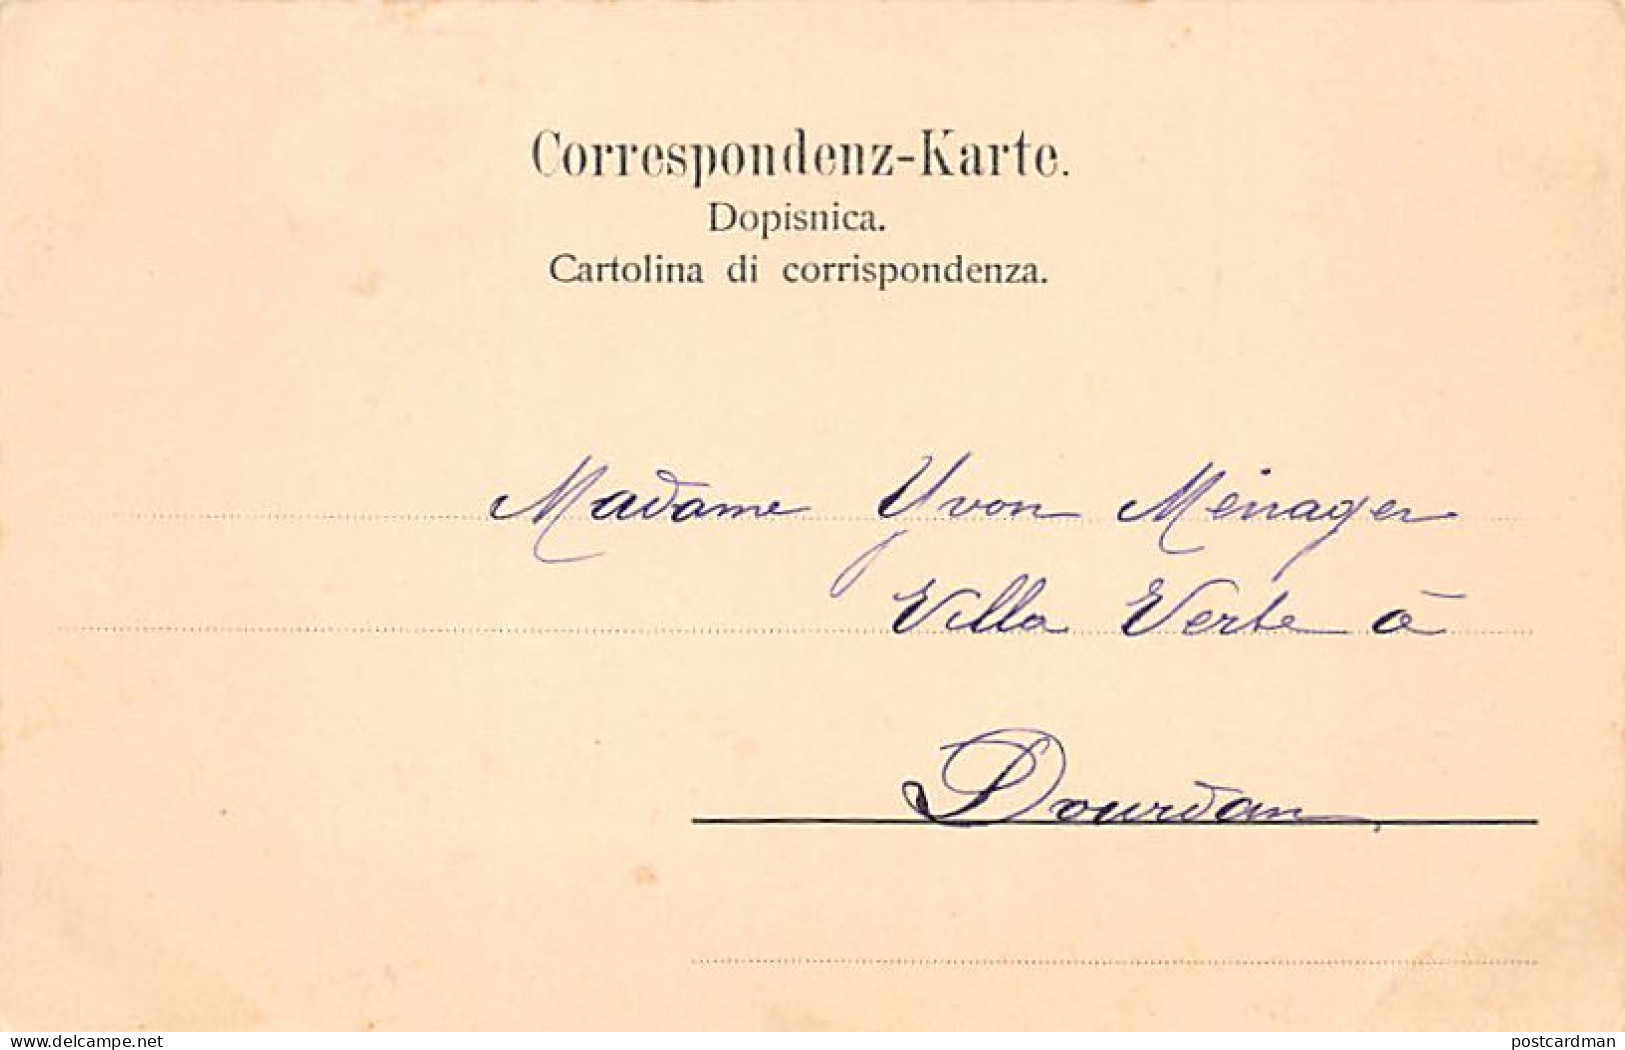 Correspondenz-Karte.
Dopisnica.
Cartolina di corrispondenza.
Madame Yvon Ménager
Villa Verte à
Dourdan
delcampe.net
postcardman